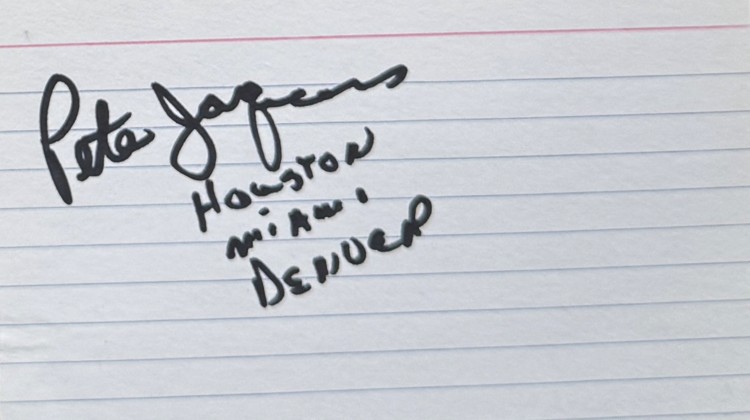 Pete Jaquess
Houston
Miami
Denver